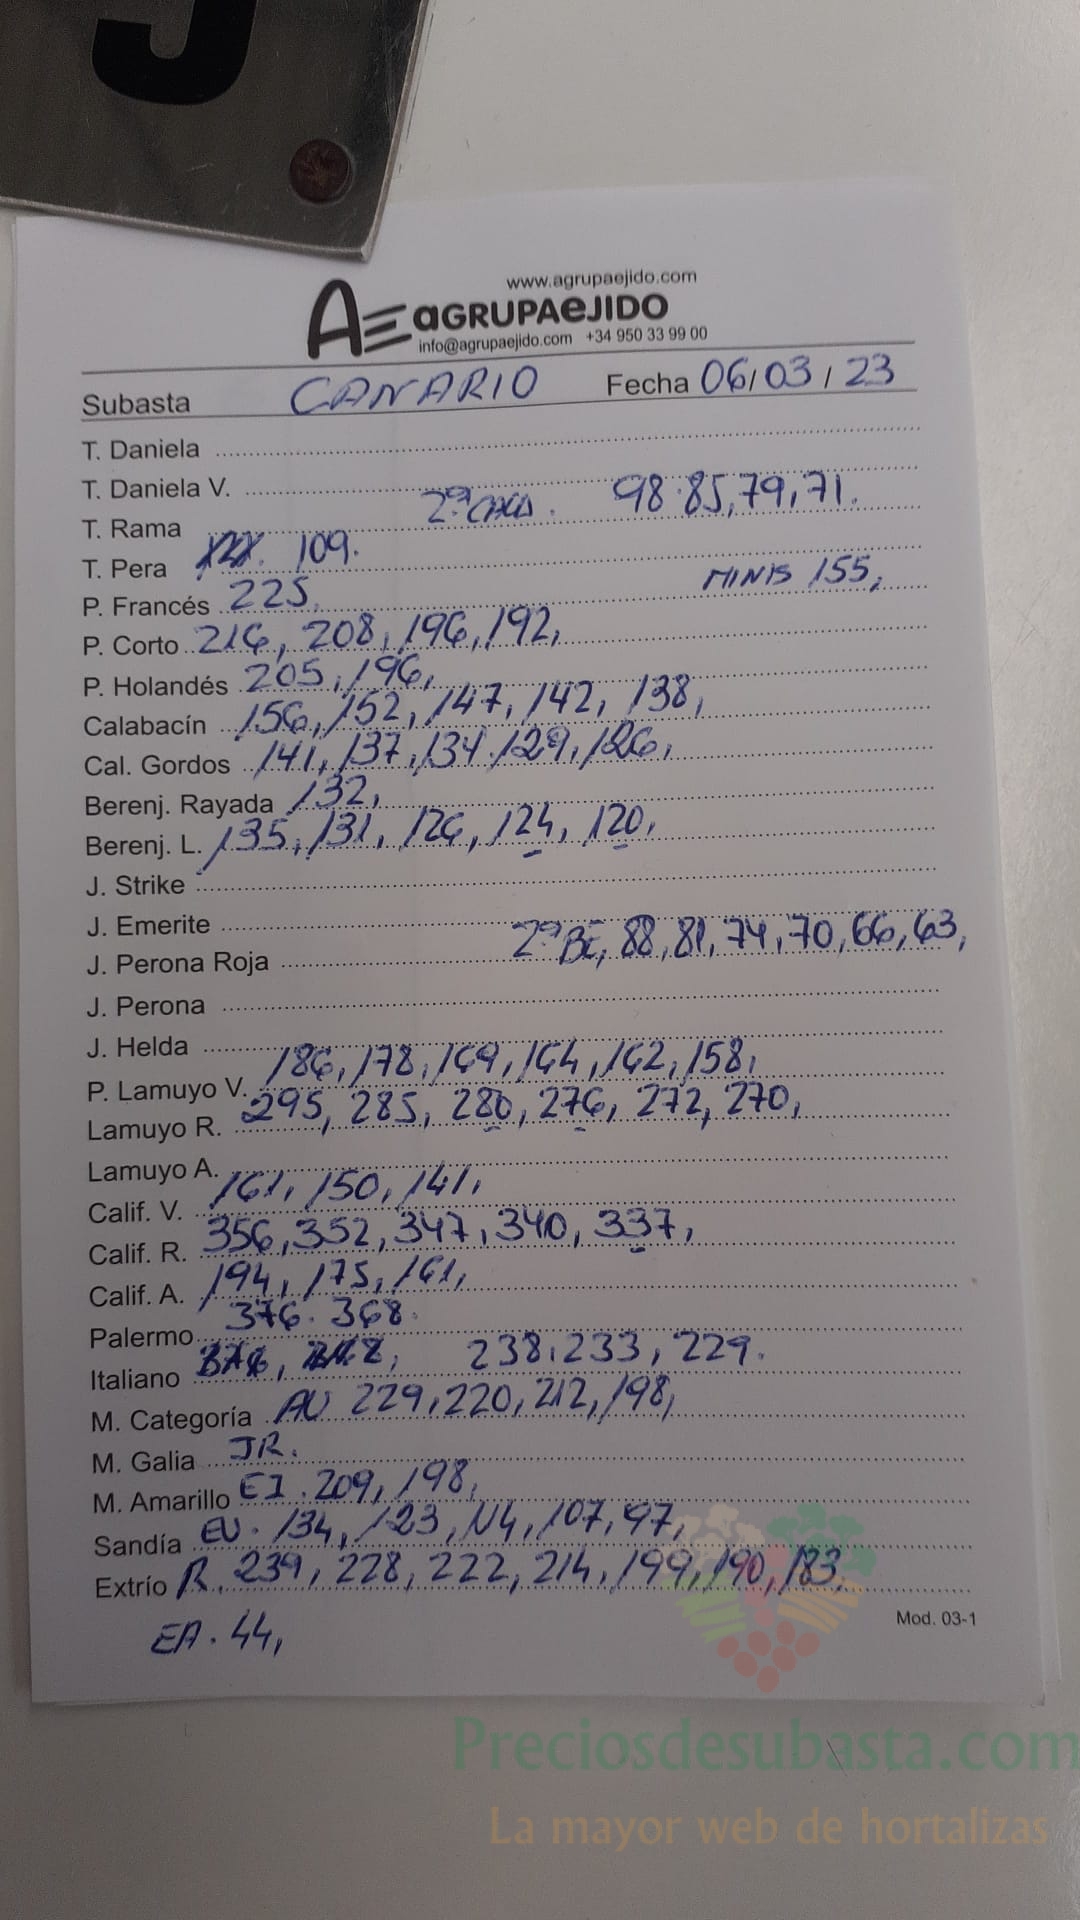 J
www.agrupaejido.com
AE aGRUPAeJIDO
info@agrupaejido.com +34 950 33 99 00
Subasta CANARIO Fecha 06/03/23
T. Daniela
T. Daniela V.
T. Rama 98.85,79,71.
T. Pera 109.
P. Francés 225, MINIS 155,
P. Corto 216, 208, 196, 192,
P. Holandés 205, 196,
Calabacín 156, 152, 147, 142, 138,
Cal. Gordos 141, 137, 134. 129, 126,
Berenj. Rayada 132,
Berenj. L. 135, 131, 126, 124, 120,
J. Strike
J. Emerite
J. Perona Roja 2ª BE, 88, 81, 74, 70, 66, 63,
J. Perona
J. Helda
P. Lamuyo V. 186, 178, 169, 164, 162, 158,
Lamuyo R. 295, 285, 280, 276, 272, 270,
Lamuyo A.
Calif. V. 161, 150, 141,
Calif. R. 356, 352, 347, 340, 337,
Calif. A. 194, 175, 161,
Palermo 376. 368.
Italiano 238. 233, 229.
M. Categoría AU 229, 220, 212, 198,
M. Galia JR.
M. Amarillo EI. 209, 198,
Sandía EU. 134, 123, 114, 107, 97,
Extrío R. 239, 228, 222, 214, 199, 190, 183,
EA. 44,
Mod. 03-1
Preciosdesubasta.com
La mayor web de hortalizas